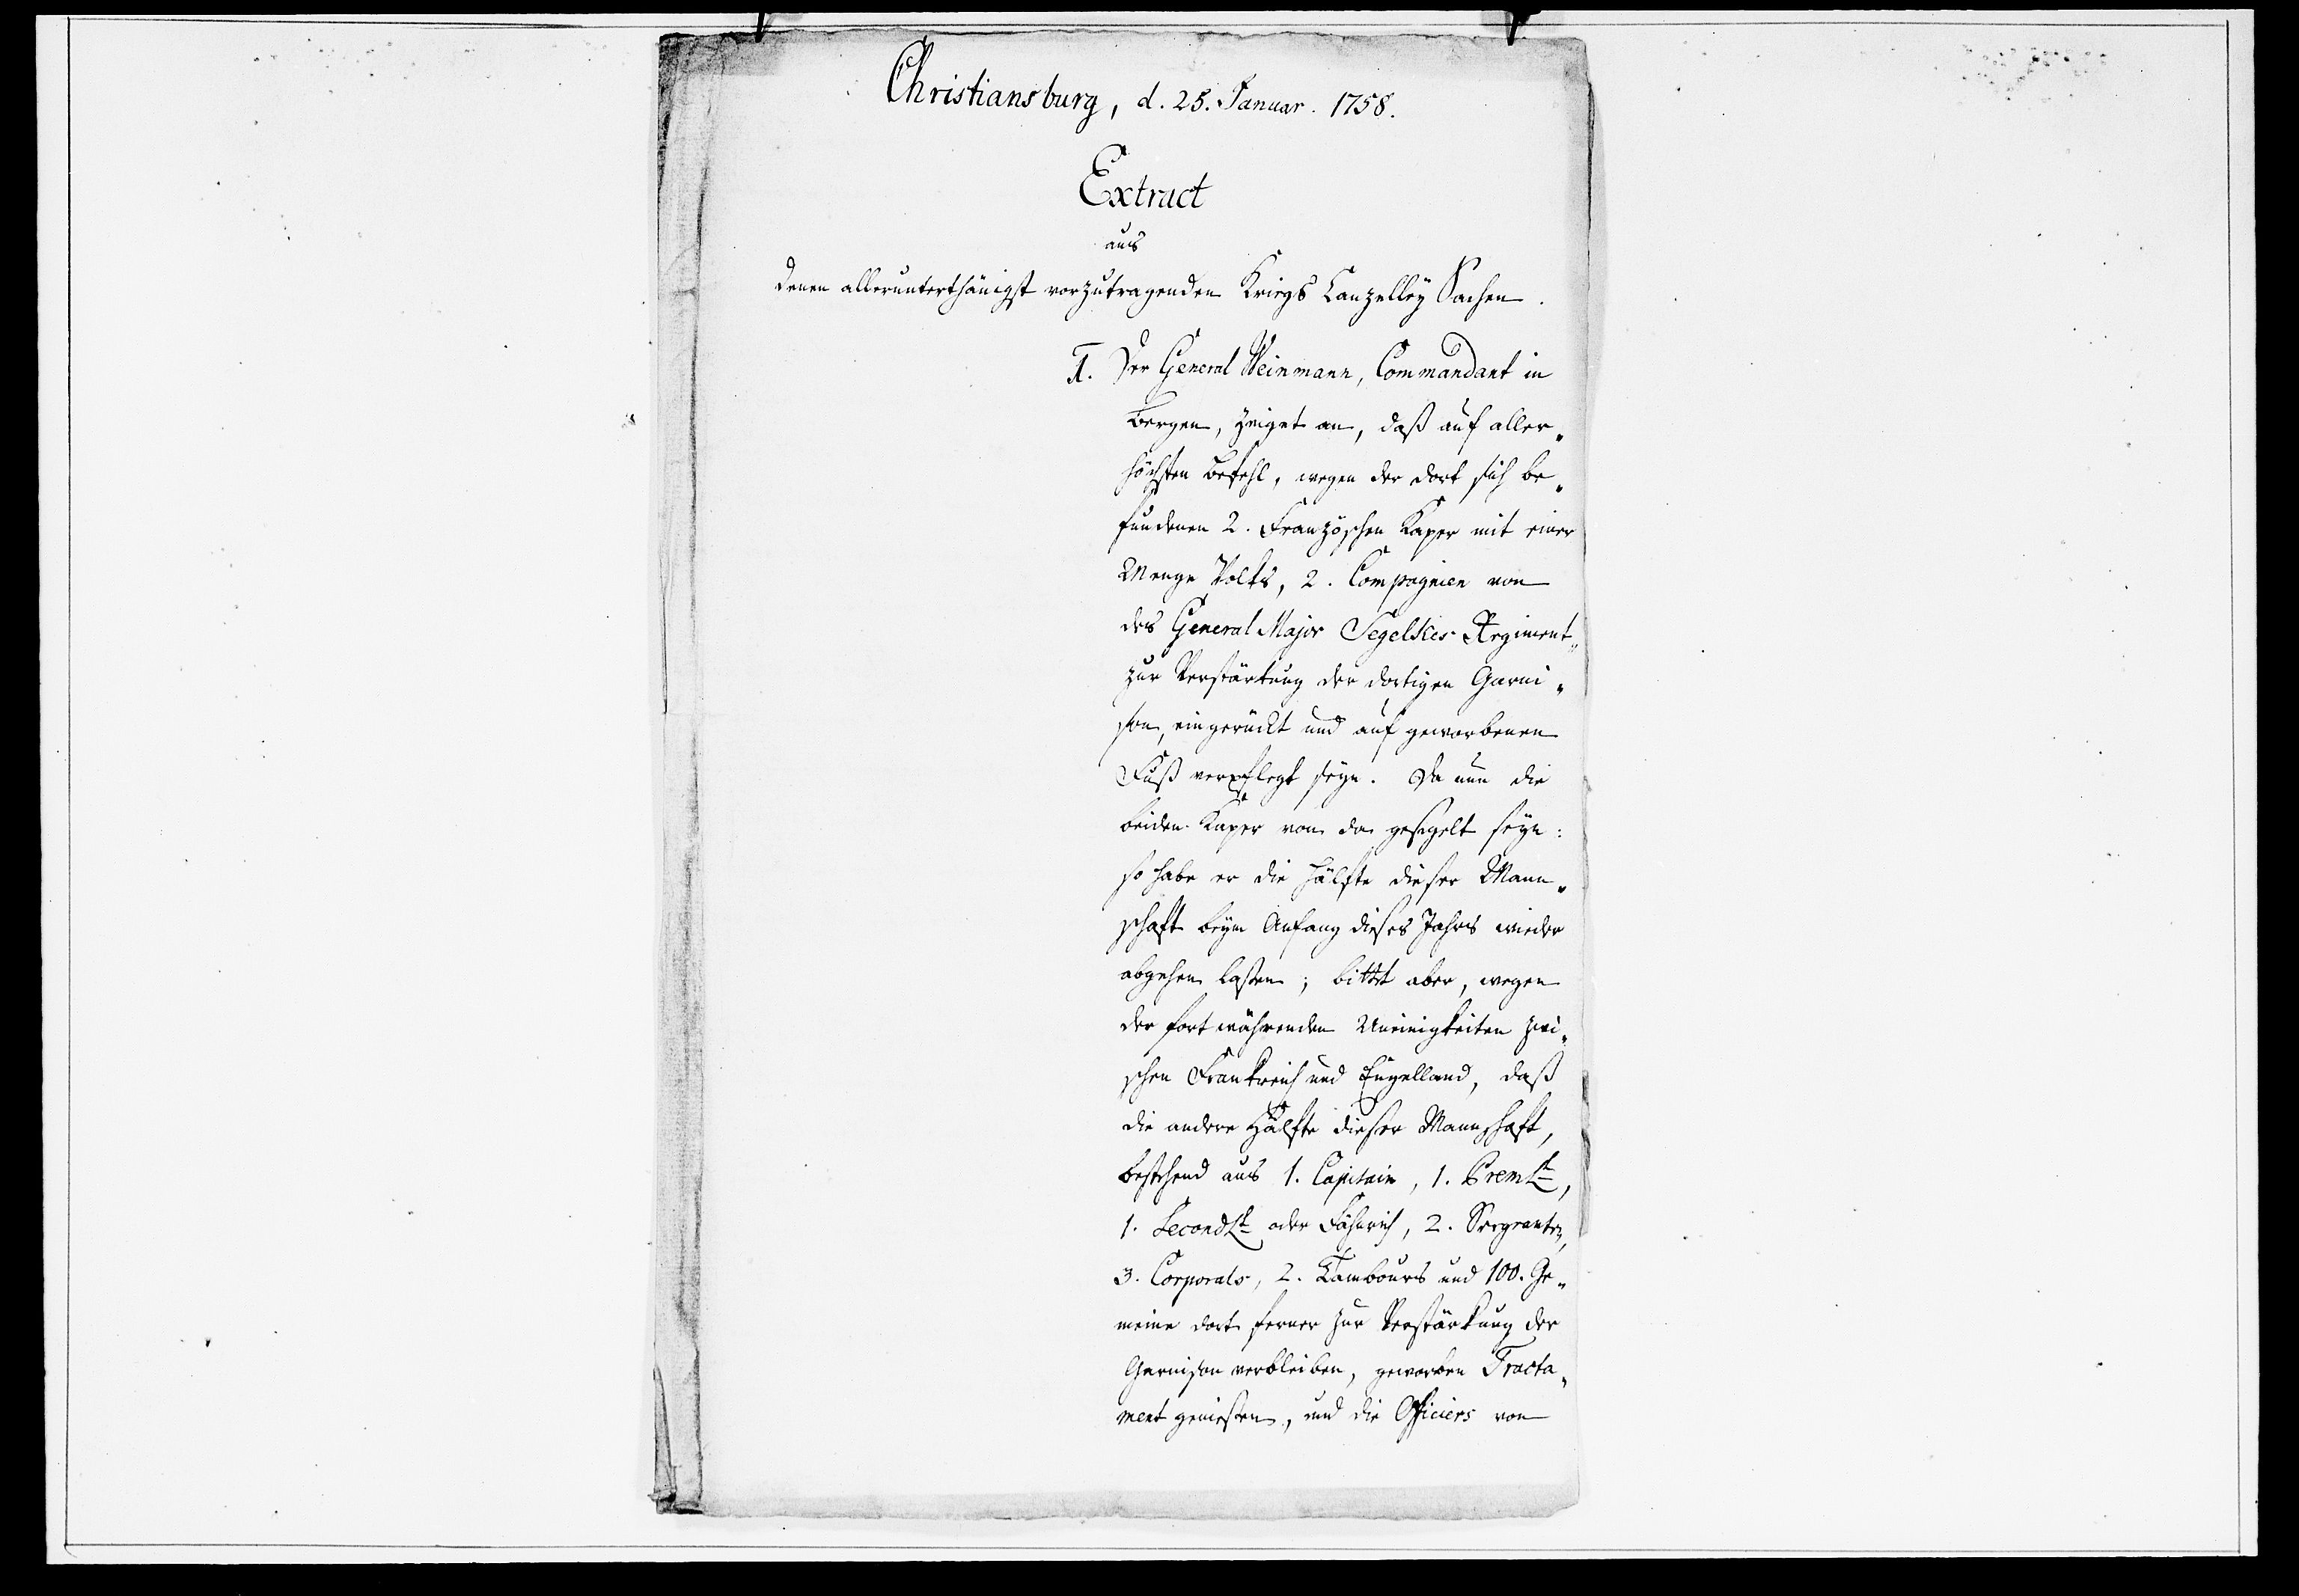 Christiansburg, d. 25. Januar. 1758.
Extract
aus
denen allerunterthänigst vorzutragenden Kriegs Canzelley Sachen.
1. Der General Weinmann, Commandant in
Bergen, zeiget an, daß auf aller„
höchsten Befehl, wegen der dort sich be„
fundenen 2. Französchen Kaper mit einer
Menge Volks, 2. Compagnien von
des General Major Segelkes Regiment„
zur Verstärkung der dortigen Garni„
son, eingerückt und auf geworbenen
Fuß verpflegt seyn. Da nun die
beiden Kaper von da gesegelt seyn:
so habe er die Hälfte dieser Mann„
schaft beym Anfang dieses Jahrs wieder
abgehen laßen; bittet aber, wegen
der fortwährenden Uneinigkeiten zwi„
schen Frankreich und Engelland, daß
die andere Hälfte dieser Mannschaft,
bestehend aus 1. Capitain, 1. PremLt,
1. SecondLt oder Fähnrich, 2. Sergeanten,
3. Corporals, 2. Tambours und 100. Ge„
meine dort ferner zur Verstärkung der
Garnison verbleiben, geworben Tracta„
ment genießen, und die Officiers von